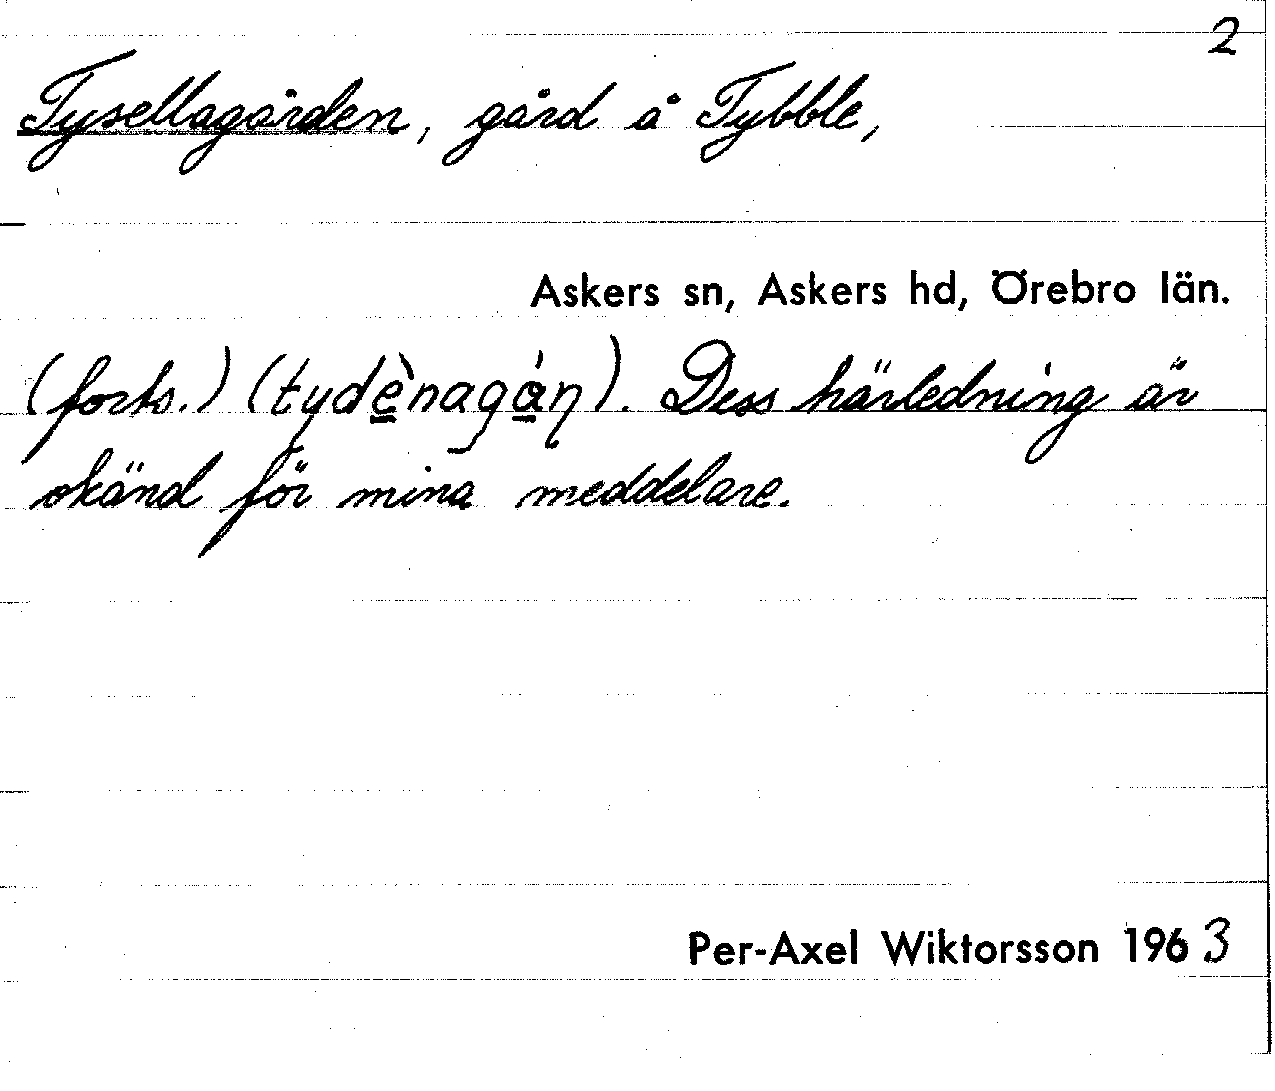 2
Tysellagården, gård å Tybble,
Askers sn, Askers hd, Örebro län.
(forts.) (tydènagán). Dess härledning är
okänd för mina meddelare.
Per-Axel Wiktorsson 1963